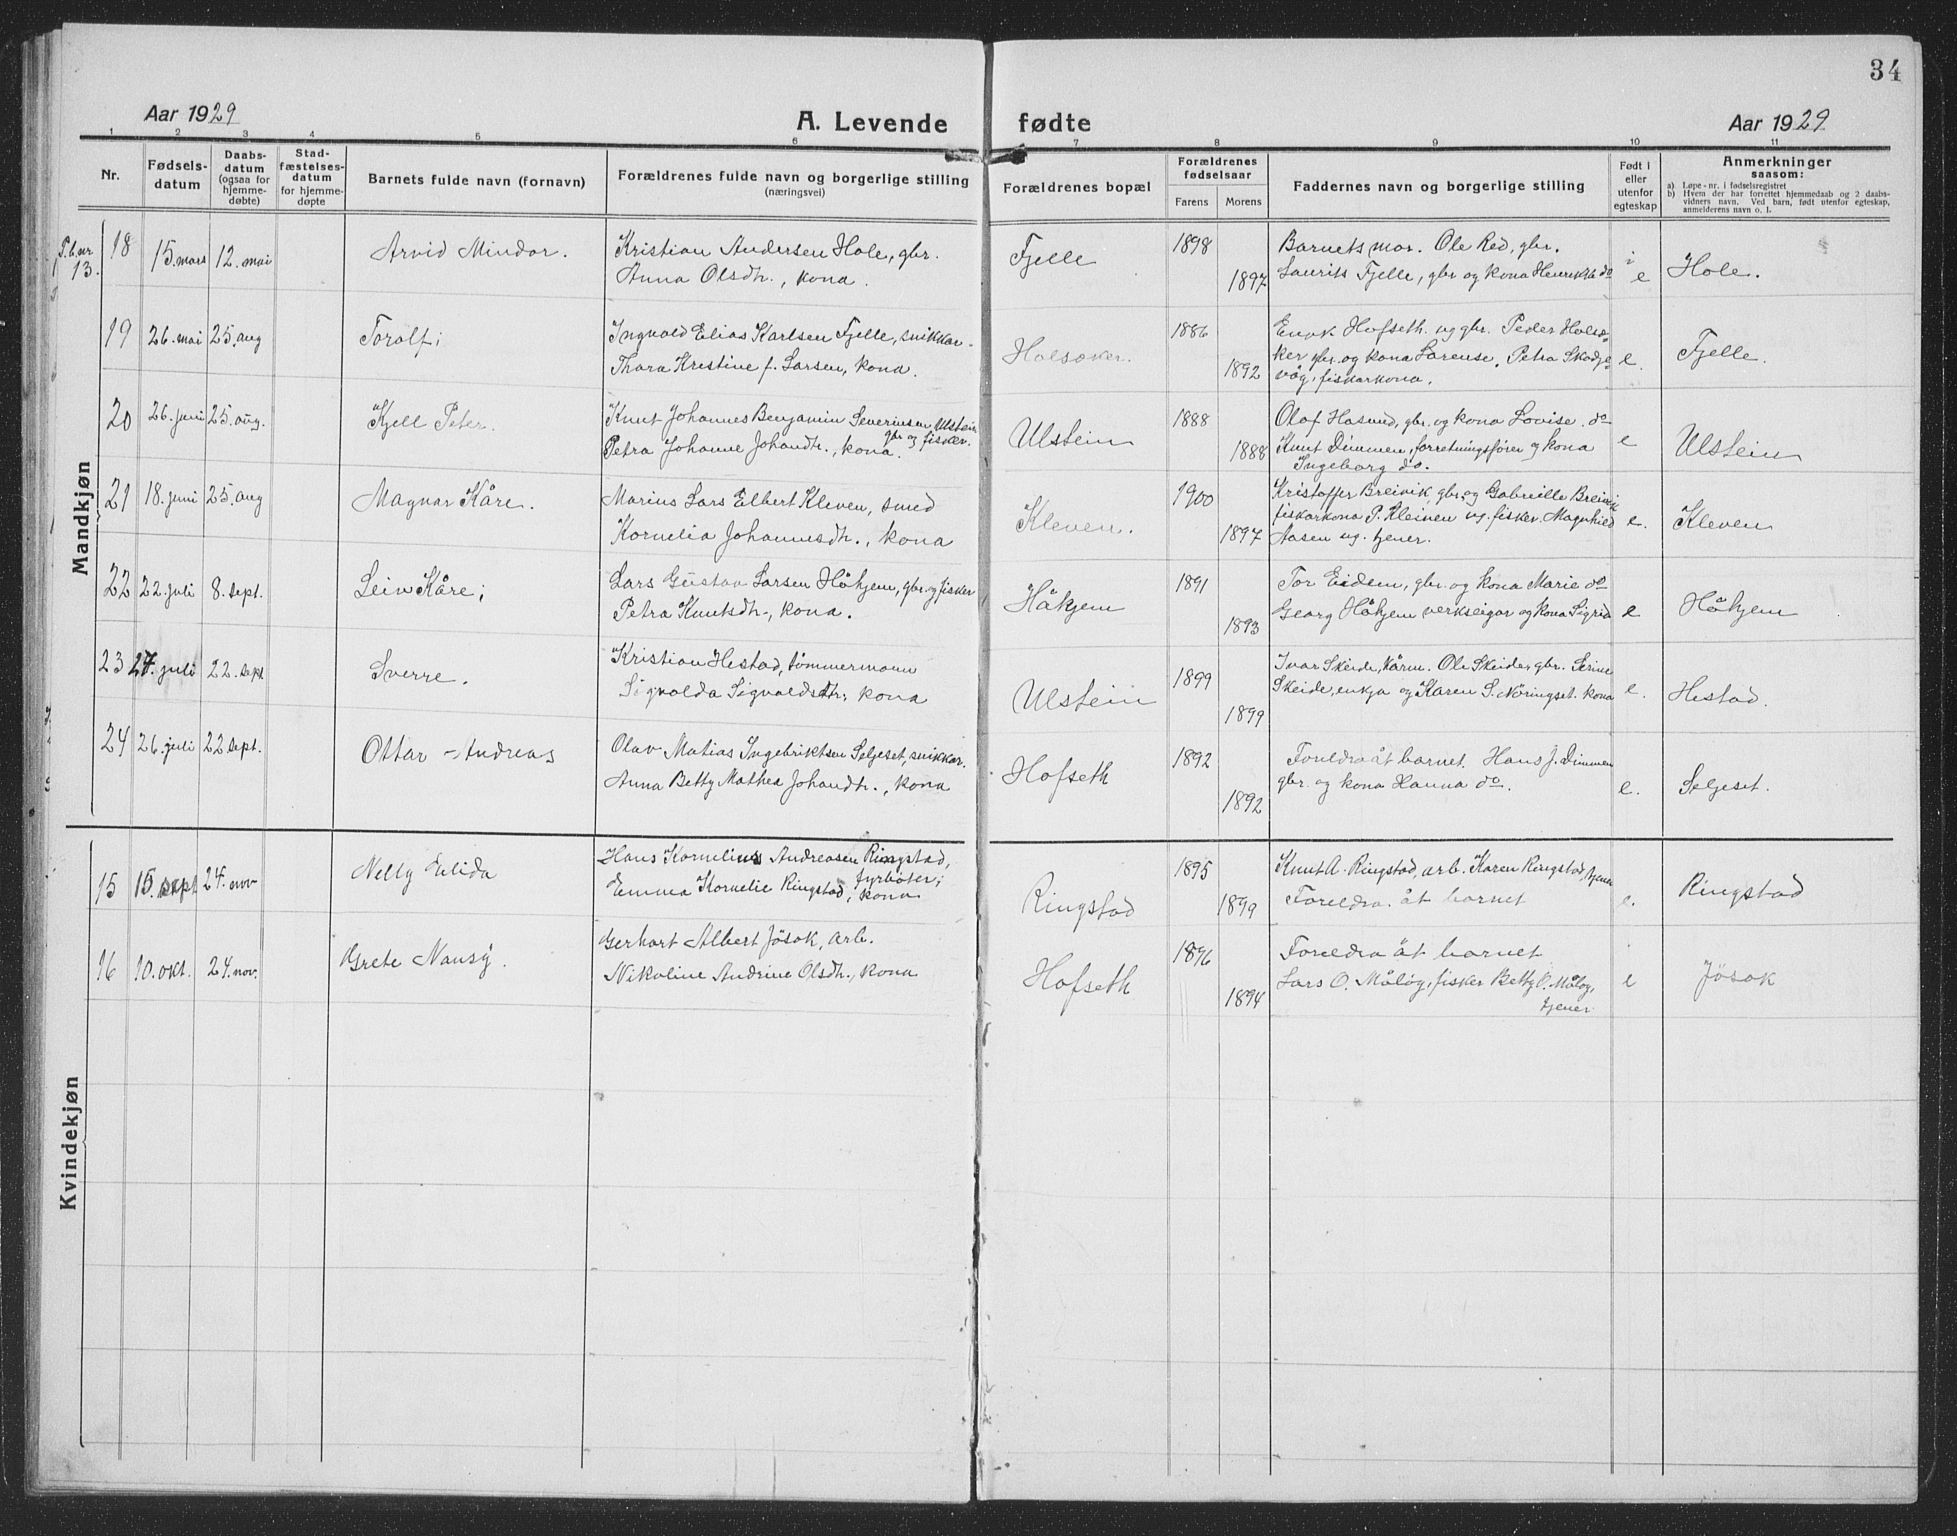 34
Aar 1929
A. Levende fødte
Aar 1929
1 2 3 4 5 6 7 8 9 10 11
Nr.
Fødsels-
datum
Daabs-
datum
(ogsaa for
hjemme-
døbte)
Stad-
fæstelses-
datum
for hjemme-
døpte
Barnets fulde navn (fornavn)
Forældrenes fulde navn og borgerlige stilling
(næringsvei)
Forældrenes bopæl
Forældrenes
fødselsaar
Farens Morens
Faddernes navn og borgerlige stilling
Født i
eller
utenfor
egteskap
Anmerkninger
saasom:
a) Løpe-nr. i fødselsregistret
b) Hvem der har forrettet hjemmedaab og 2 daabs-
vidners navn. Ved barn, født utenfor egteskap,
anmelderens navn o. l.
Mandkjøn
13.
18 15. mars 12. mai Arvid Mindor.
Kristian Andersen Hole, gbr.
Anna Olsdtr., kona.
Fjelle 1898 1897
Barnets mor. Ole Red, gbr.
Laurits Fjelle, gbr og kona Henrikke do
i e Hole.
19 26. mai 25. aug Torolf;
Ingvald Elias Karlsen Fjelle, snikkar.
Thora Kristine f. Larsen, kona.
Holsæker. 1886 1892
Enok Hofseth ug gbr. Peder Holsæ-
ker gbr. og kona Lorense. Petra Skodje-
våg, fiskarkona.
e. Fjelle.
20 26. juni 25. aug. Kjell Peter.
Knut Johannes Benjamin Severinsen Ulstein
gbr og fisker.
Petra Johanne Johandtr., kona.
Ulstein 1888 1888
Olaf Hasund, gbr. og kona Lovise. do
Knut Dimmen, forretningsfører og kona
Ingeborg do.
e Ulstein
21 18. juni 25. aug Magnar Kåre.
Marius Lars Elbert Kleven, smed
Kornelia Johannesdtr., kona
Kleven. 1900 1897
Kristoffer Breivik, gbr. og Gabrielle Breivik
fiskarkona P. Kleiven ug. fisker. Magnhild
Aasen ug. tjener.
e. Kleven
22 22. juli 8. sept. Leiv Kåre;
Lars Gustav Larsen Håhjem, gbr. og fisker
Petra Knutsdtr., kona.
Håhjem 1891 1893
Tor Eidem, gbr. og kona Marie do
Georg Håhjem verkseigar og kona Sigrid
e Håhjem
23 27. juli 22. sept Sverre.
Kristian Hestad, tømmermann
Sigvalda Sigvaldsdtr; kona
Ulstein 1899 1899
Ivar Skeide, kårm. Ole Skeide, gbr. Serine
Skeide, enkja og Karen S. Nøringset. kona
e. Hestad.
24 26. juli 22 sept. Ottar Andreas
Olav Matias Ingebriktsen Seljeset, snikkar.
Anna Betty Mathea Johandtr., kona
Hofseth 1892 1892
Foreldra åt barnet. Hans J. Dimmen
gbr. og kona Hanna do.
e. Seljeset.
Kvindekjøn
15 15. sept 24. nov Nelly Elida
Hans Kornelius Andreasen Ringstad,
fyrbøter;
Emma Kornelie Ringstad, kona
Ringstad 1895 1899
Knut A. Ringstad, arb. Karen Ringstad, tjener
Foreldra åt barnet
e. Ringstad
16 10. okt. 24. nov. Grete Nansy.
Gerhart Albert Jösok, arb.
Nikoline Andrine Olsdtr., kona
Hofseth 1896 1894
Foreldra åt barnet
Lars O. Måløy, fisker Betty O. Måløy,
tjener.
e Jösok